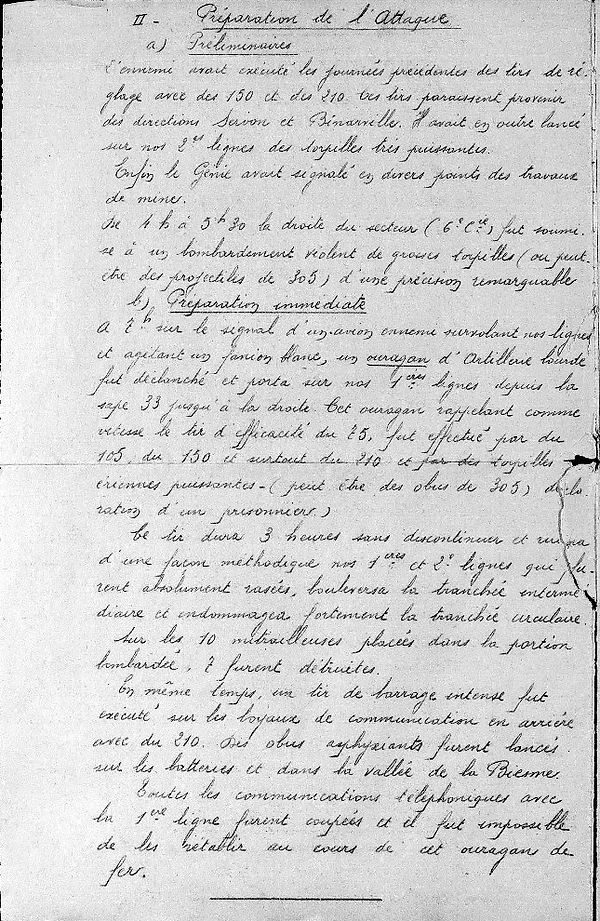 II - Préparation de l'Attaque
a) Préliminaires
L'ennemi avait exécuté les journées précédentes des tirs de ré-
glage avec des 150 et des 210. Ces tirs paraissent provenir
des directions Servon et Binarville. Il avait en outre lancé
sur nos 2es lignes des torpilles très puissantes.
Enfin le Génie avait signalé en divers points des travaux
de mine.
De 4 h à 5h30 la droite du secteur (6e Cie) fut soumi-
se à un bombardement violent de grosses torpilles (ou peut-
être des projectiles de 305) d'une précision remarquable
b) Préparation immédiate
A 7h sur le signal d'un avion ennemi survolant nos lignes
et agitant un fanion blanc, un ouragan d'Artillerie lourde
fut déclanché et porta sur nos 1ères lignes depuis la
sape 33 jusqu'à la droite. Cet ouragan rappelant comme
vitesse le tir d'efficacité du 75, fut effectué par du
105, du 150 et surtout du 210 et par des torpilles
ériennes puissantes - (peut être des obus de 305) décla
ration d'un prisonnier.)
Ce tir dura 3 heures sans discontinuer et ruina
d'une façon méthodique nos 1ères et 2e lignes qui fu-
rent absolument rasées, bouleversa la tranchée intermé
diaire et endommagea fortement la tranchée circulaire.
Sur les 10 mitrailleuses placées dans la portion
bombardée, 7 furent détruites.
En même temps, un tir de barrage intense fut
exécuté sur les boyaux de communication en arrière
avec du 210. Des obus asphyxiants furent lancés
sur les batteries et dans la vallée de la Biesme.
Toutes les communications téléphoniques avec
la 1ère ligne furent coupées et il fut impossible
de les rétablir au cours de cet ouragan de
fer.